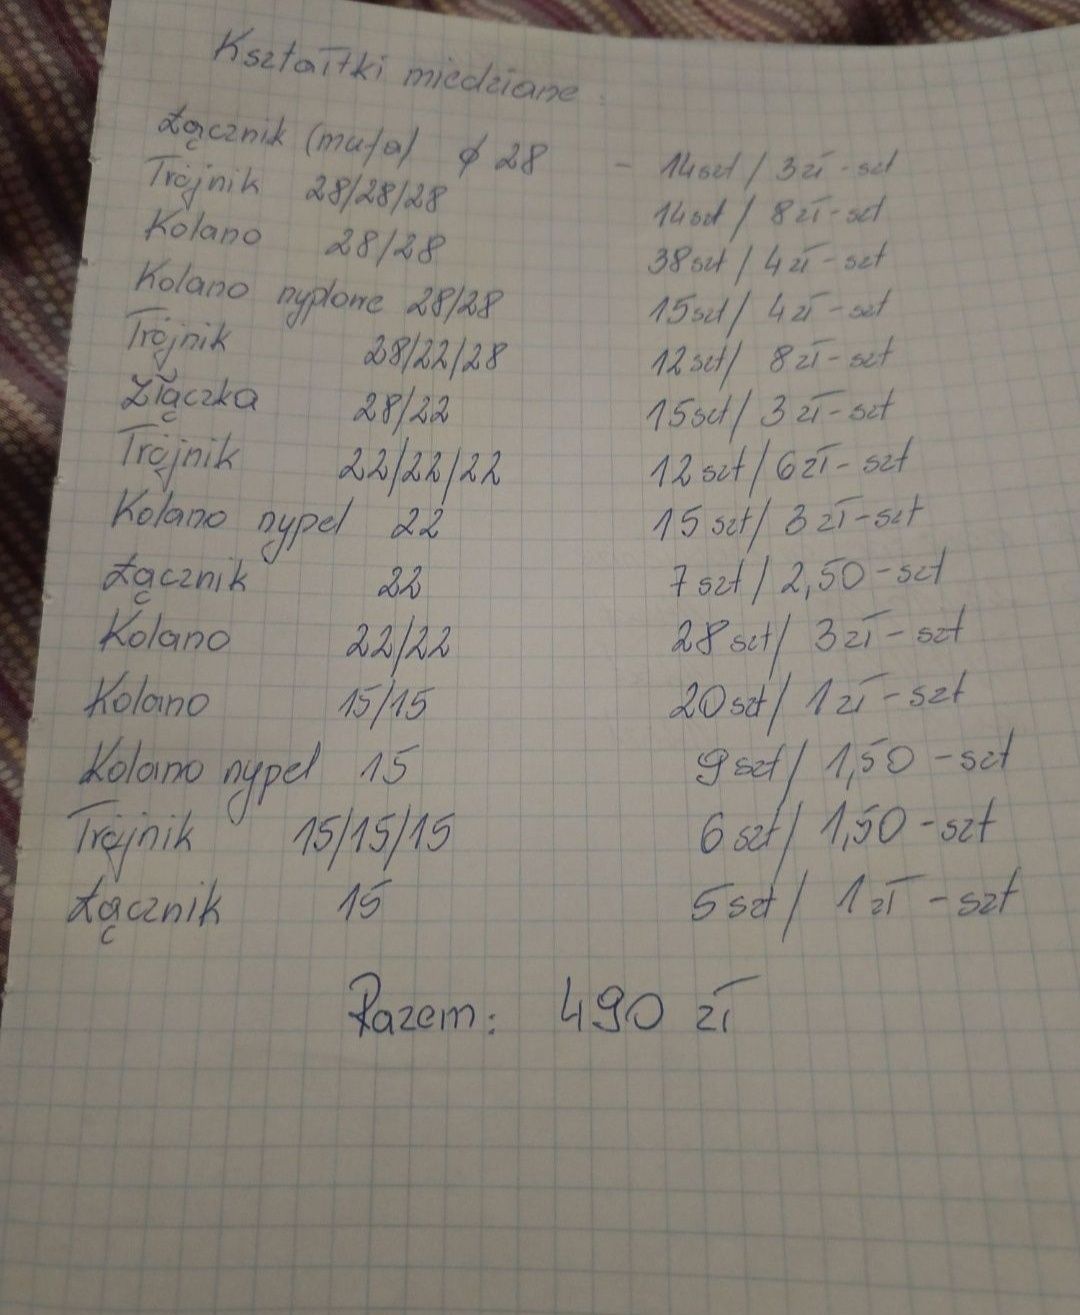 Kształtki miedziane:
Łącznik (mufa) ϕ 28 - 14szt / 3zł-szt
Trójnik 28/28/28 14szt / 8zł-szt
Kolano 28/28 38szt / 4zł-szt
Kolano nyplowe 28/28 15szt / 4zł-szt
Trójnik 28/22/28 12szt / 8zł-szt
Złączka 28/22 15szt / 3zł-szt
Trójnik 22/22/22 12szt / 6zł-szt
Kolano nypel 22 15szt / 3zł-szt
Łącznik 22 7szt / 2,50-szt
Kolano 22/22 28szt / 3zł-szt
Kolano 15/15 20szt / 1zł-szt
Kolano nypel 15 9szt / 1,50-szt
Trójnik 15/15/15 6szt / 1,50-szt
Łącznik 15 5szt / 1zł-szt
Razem: 490 zł